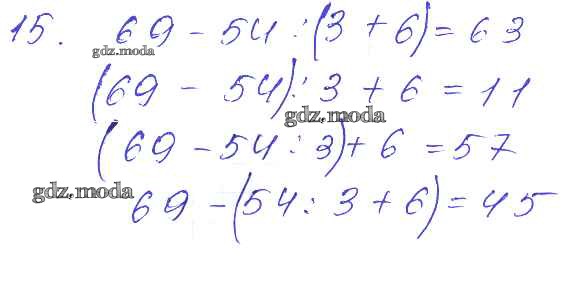 15. 69 - 54 : (3 + 6) = 63
gdz.moda
(69 - 54) : 3 + 6 = 11
gdz.moda
(69 - 54 : 3) + 6 = 57
gdz.moda
69 - (54 : 3 + 6) = 45